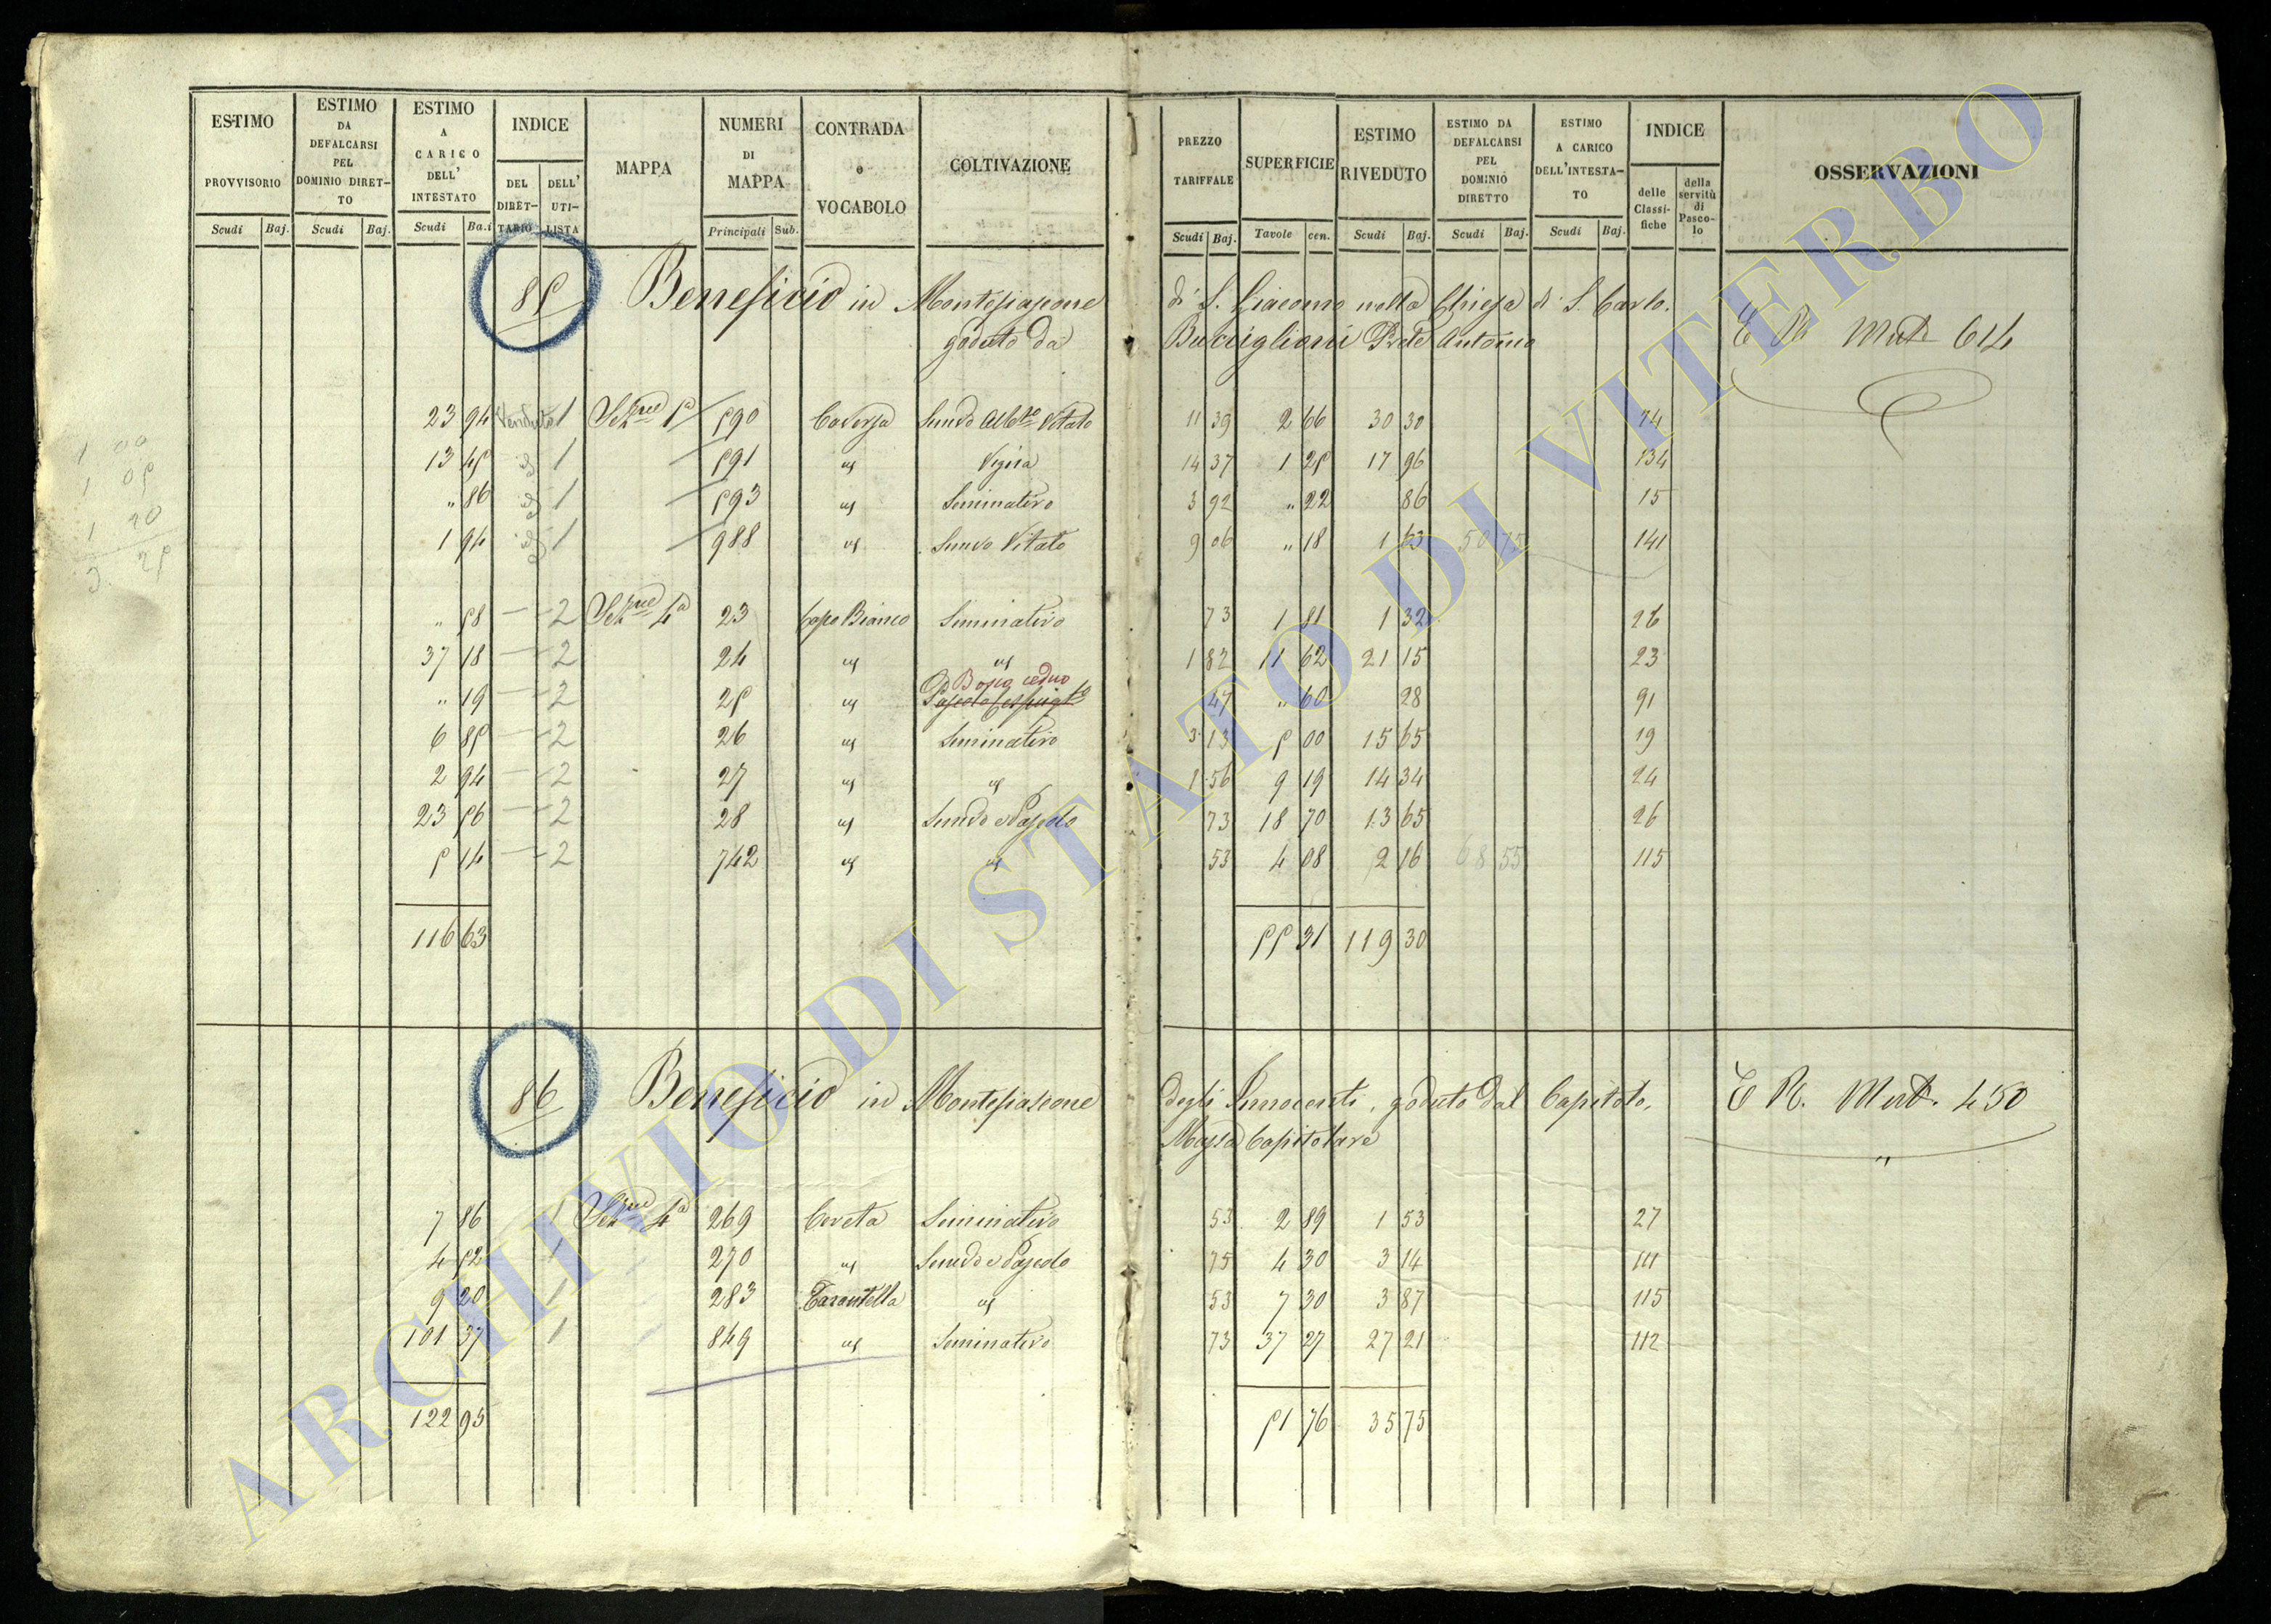 ESTIMO PROVVISORIO Scudi Baj.
ESTIMO DA DEFALCARSI PEL DOMINIO DIRET-TO Scudi Baj.
ESTIMO A CARICO DELL' INTESTATO Scudi Ba.i
INDICE DEL DIRET-TARIO DELL' UTI-LISTA
MAPPA
NUMERI DI MAPPA Principali Sub.
CONTRADA e VOCABOLO
COLTIVAZIONE
PREZZO TARIFFALE Scudi Baj.
SUPERFICIE Tavole cen.
ESTIMO RIVEDUTO Scudi Baj.
ESTIMO DA DEFALCARSI PEL DOMINIO DIRETTO Scudi Baj.
ESTIMO A CARICO DELL'INTESTA-TO Scudi Baj.
INDICE delle Classi-fiche della servitù di Pasco-lo
OSSERVAZIONI
85 Beneficio in Montefiascone di S. Giacomo nella Chiesa di S. Carlo.
goduto da Bucciglioni Prete Antonio
E R Mut 614
23 94 Venduto 1 Sez.ne 1a 590 Caversa Semvo Albto Vitato 11 39 2 66 30 30 74
13 45 id 1 591 id Vigna 14 37 1 25 17 96 134
" 86 id 1 593 id Seminativo 3 92 " 22 86 15
1 94 id 1 988 id Semvo Vitato 9 06 " 18 1 63 50 75 141
" 58 2 Sez.ne 4a 23 Capo Bianco Seminativo 73 1 81 1 32 26
37 18 2 24 id id 1 82 11 62 21 15 23
" 19 2 25 id Bosco ceduo 47 " 60 28 91
6 85 2 26 id Seminativo 3 13 5 00 15 65 19
2 94 2 27 id id 1 56 9 19 14 34 24
23 56 2 28 id Semvo e Pascolo 73 18 70 13 65 26
5 14 2 742 id id 53 4 08 2 16 68 55 115
116 63 55 31 119 30
1 00
1 05
1 20
3 25
86 Beneficio in Montefiascone degli Innocenti, goduto dal Capitolo,
Massa Capitolare
E R. Mut. 450
"
7 86 1 Sez.ne 4a 269 Cerreta Seminativo 53 2 89 1 53 27
4 52 1 270 id Semvo e Pascolo 75 4 30 3 14 111
9 20 1 283 Tarantella id 53 7 30 3 87 115
101 37 1 849 id Seminativo 73 37 27 27 21 112
122 95 51 76 35 75
ARCHIVIO DI STATO DI VITERBO